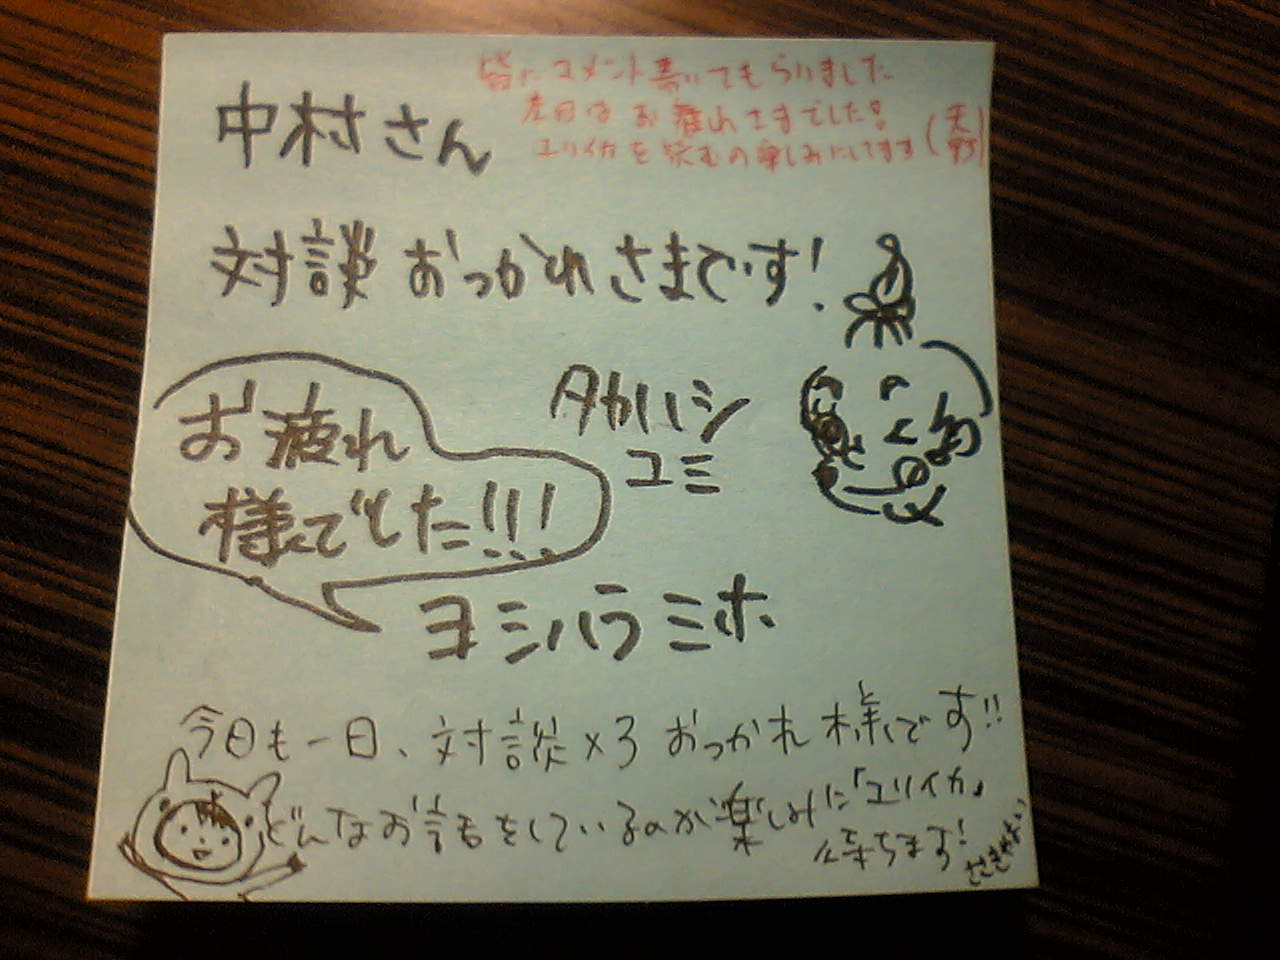 中村さん
皆にコメント書いてもらいました
お疲れさまでした!
ユリイカを読むの楽しみにしてます(天野)
対談おつかれさまです!
タカハシ
ユミ
お疲れ
様でした!!!
ヨシハラミホ
今日も一日、対談×3おつかれ様です!!
どんなお話をしているのか楽しみに「ユリイカ」
待ちます!
ささきやよい